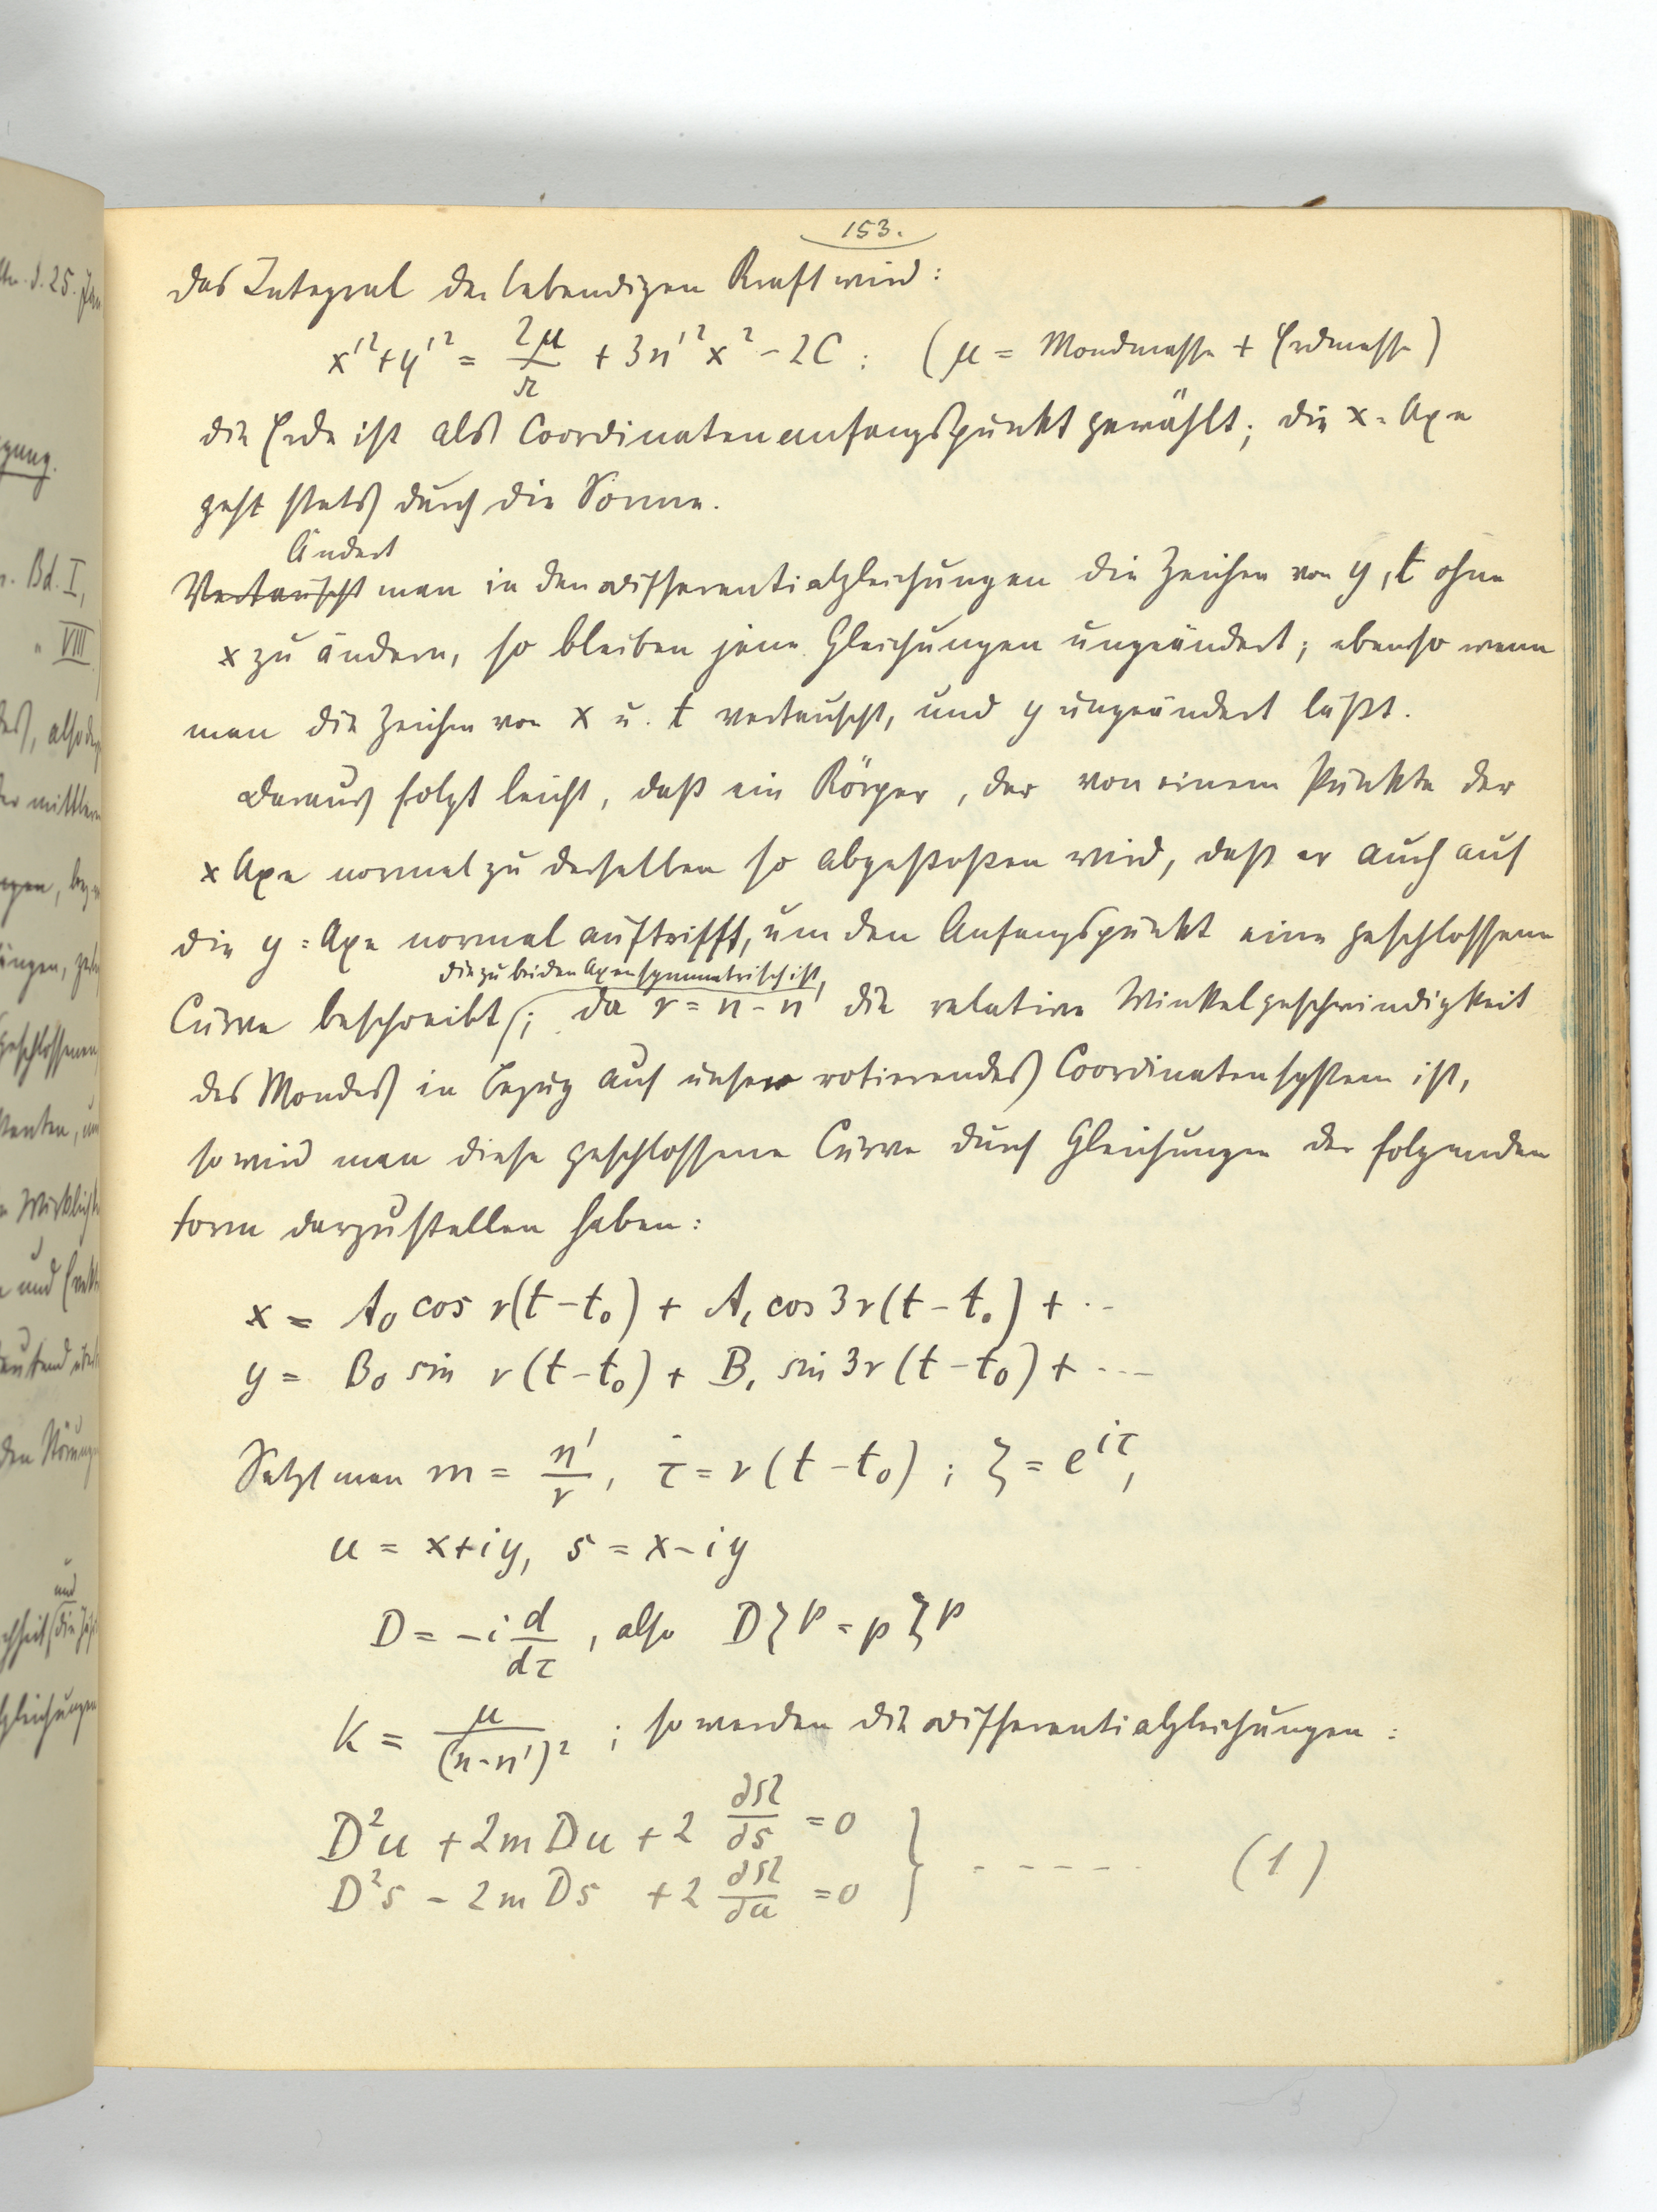 153.
das Integral der lebendigen Kraft wird:
x'² + y'² = 2μ/r + 3n'²x² - 2C ; (μ = Mondmasse + Erdmasse)
die Erde ist als Coordinatenanfangspunkt gewählt; die x-Axe
geht stets durch die Sonne.
Ändert
Vertauscht man in den Differentialgleichungen die Zeichen von y, t ohne
x zu ändern, so bleiben jene Gleichungen ungeändert; ebenso wenn
man die Zeichen von x u. t vertauscht, und y ungeändert läßt.
Daraus folgt leicht, daß ein Körper, der von einem Punkte der
x Axe normal zu derselben so abgestoßen wird, daß er auch auf
die y=Axe normal auftrifft, um den Anfangspunkt eine geschlossene
die zu beiden Axen symmetrisch ist,
Curve beschreibt; da ν = n - n' die relative Winkelgeschwindigkeit
des Mondes in bezug auf unser rotierendes Coordinatensystem ist,
so wird man diese geschlossene Curve durch Gleichungen der folgenden
Form darzustellen haben:
x = A₀ cos ν(t - t₀) + A₁ cos 3ν(t - t₀) + ··
y = B₀ sin ν(t - t₀) + B₁ sin 3ν(t - t₀) + ···
Setzt man m = n'/ν, τ = ν(t - t₀) ; ζ = e^{iτ},
u = x + iy, s = x - iy
D = -i d/dτ, also Dζ^p = pζ^p
K = μ/(n-n')² ; so werden die Differentialgleichungen:
D²u + 2m Du + 2 ∂Ω/∂s = 0
} - - - - - (1)
D²s - 2m Ds + 2 ∂Ω/∂u = 0